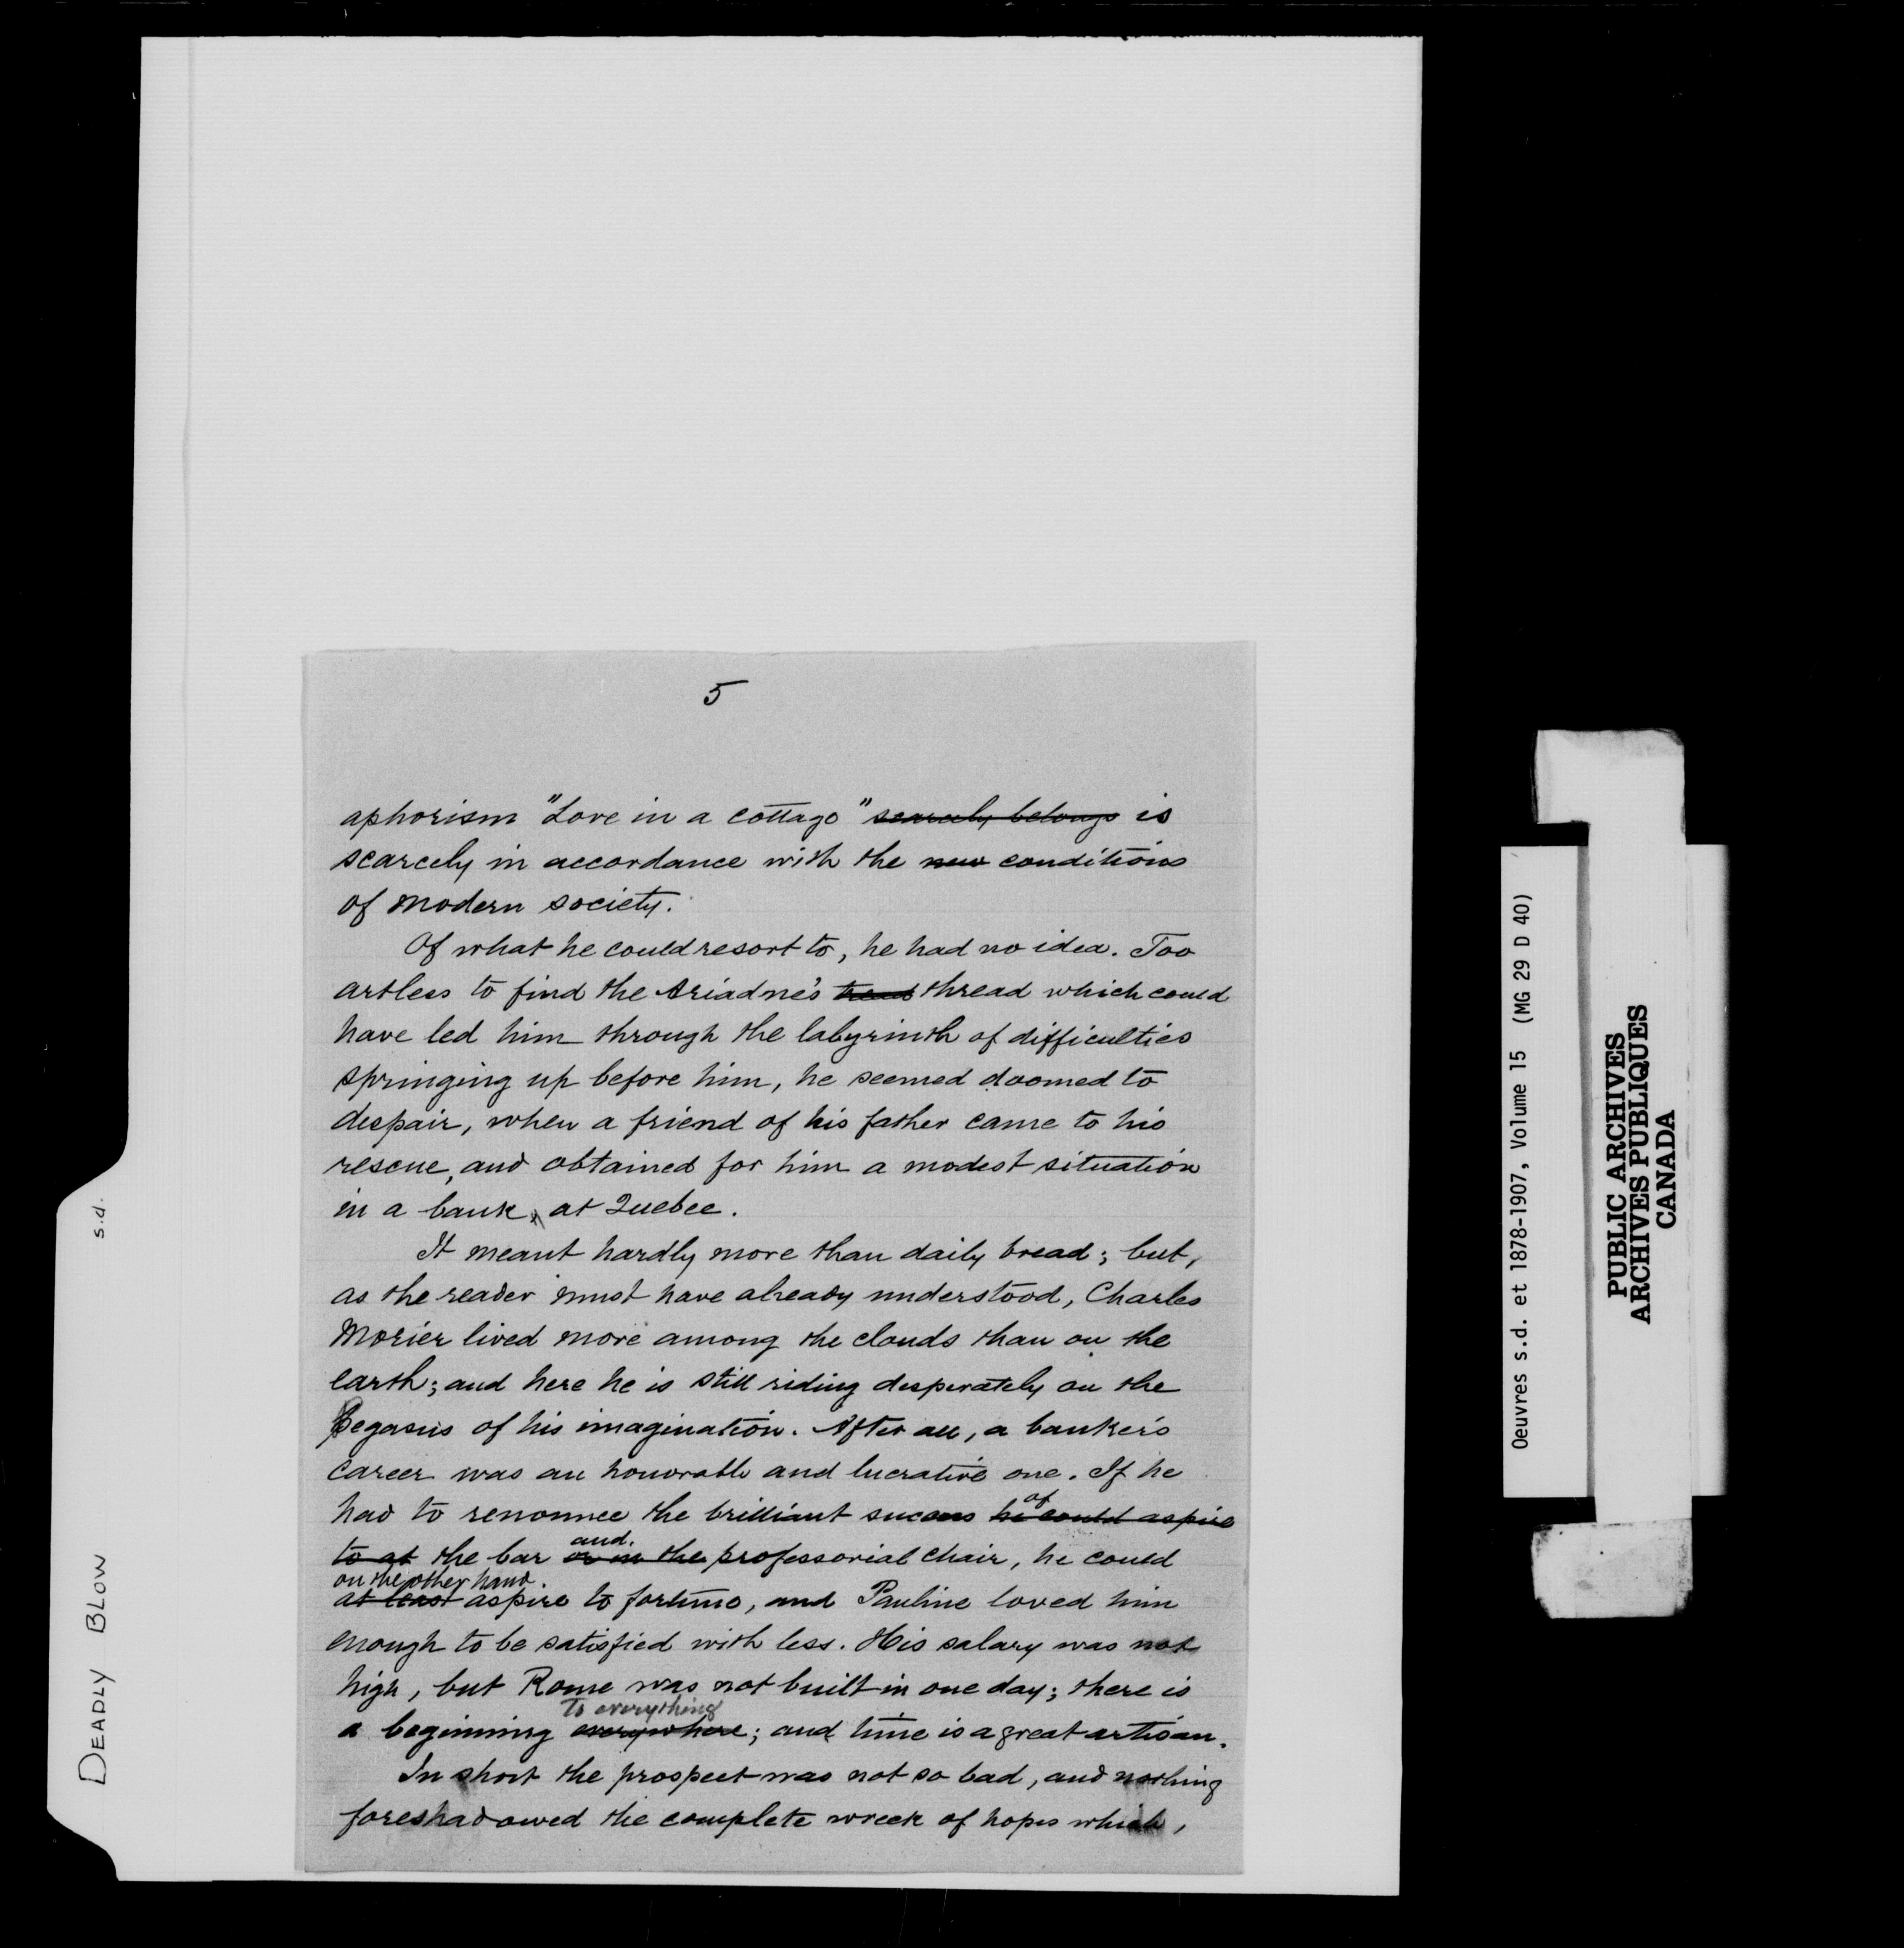 5
aphorism "Love in a cottage" scarcely belongs is
scarcely in accordance with the new conditions
of modern society.
Of what he could resort to, he had no idea. Too
artless to find the Ariadne's tread thread which could
have led him through the labyrinth of difficulties
springing up before him, he seemed doomed to
despair, when a friend of his father came to his
rescue, and obtained for him a modest situation
in a bank, at Quebec.
It meant hardly more than daily bread; but,
as the reader must have already understood, Charles
Morier lived more among the clouds than on the
earth; and here he is still riding desperately on the
Pegasus of his imagination. After all, a banker's
career was an honorable and lucrative one. If he
of
had to renounce the brilliant success he could aspire
and
to at the bar or in the professorial chair, he could
on the other hand
at least aspire to fortune, and Pauline loved him
enough to be satisfied with less. His salary was not
high, but Rome was not built in one day; there is
to everything
a beginning everywhere; and time is a great artisan.
In short the prospect was not so bad, and nothing
foreshadowed the complete wreck of hopes which,
DEADLY BLOW s.d.
Oeuvres s.d. et 1878-1907, Volume 15 (MG 29 D 40)
PUBLIC ARCHIVES
ARCHIVES PUBLIQUES
CANADA